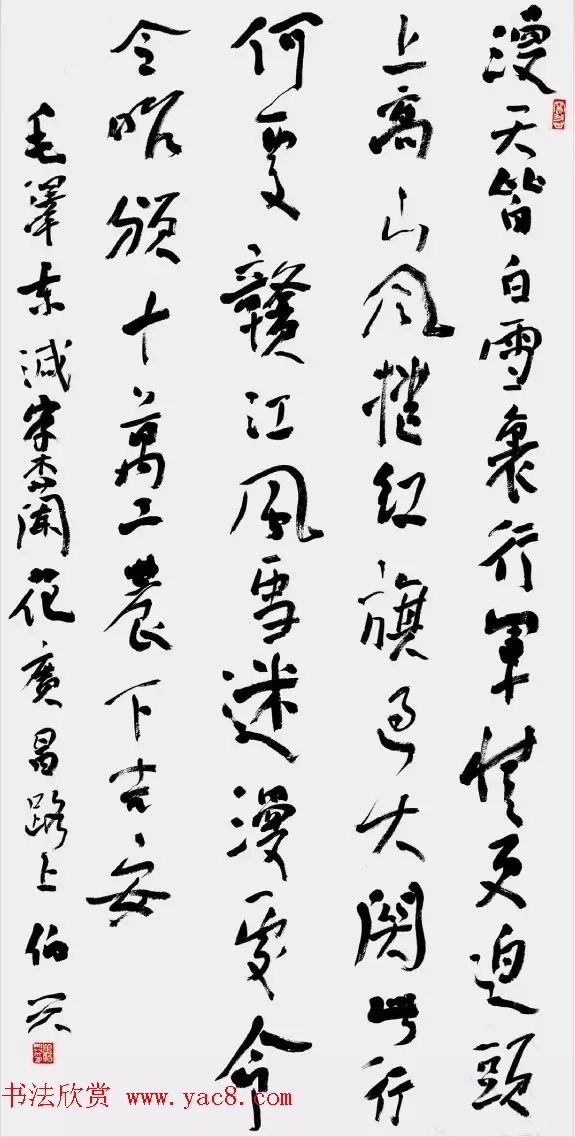 漫天皆白雪裏行軍情更迫頭
上高山風捲紅旗過大關此行
何處贛江風雪迷漫處命
令昨頒十萬工農下吉安
毛澤東減字木蘭花廣昌路上 伯
书法欣赏 www.yac8.com